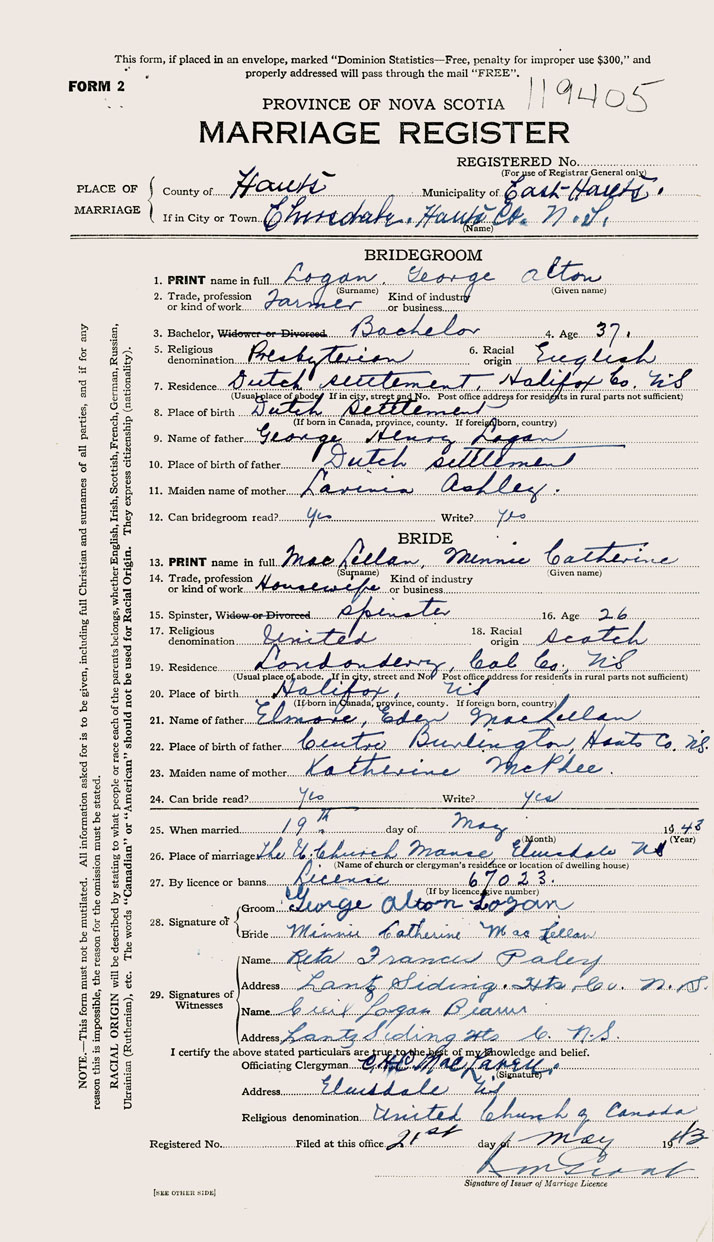 This form, if placed in an envelope, marked "Dominion Statistics—Free, penalty for improper use $300," and
properly addressed will pass through the mail "FREE".
FORM 2
119405
PROVINCE OF NOVA SCOTIA
MARRIAGE REGISTER
REGISTERED No.
(For use of Registrar General only)
PLACE OF MARRIAGE
County of Hants Municipality of East Hants.
If in City or Town Elmsdale. Hants Co. N.S.
(Name)
BRIDEGROOM
1. PRINT name in full Logan, George Alton
(Surname) (Given name)
2. Trade, profession or kind of work Farmer Kind of industry or business
3. Bachelor, Widower or Divorced Bachelor 4. Age 37.
5. Religious denomination Presbyterian 6. Racial origin English
7. Residence Dutch settlement, Halifax Co. NS
(Usual place of abode. If in city, street and No. Post office address for residents in rural parts not sufficient)
8. Place of birth Dutch Settlement
(If born in Canada, province, county. If foreign born, country)
9. Name of father George Henry Logan
10. Place of birth of father Dutch settlement
11. Maiden name of mother Lavinia Ashley.
12. Can bridegroom read? yes Write? yes
BRIDE
13. PRINT name in full MacLellan, Minnie Catherine
(Surname) (Given name)
14. Trade, profession or kind of work Housewife Kind of industry or business
15. Spinster, Widow or Divorced Spinster 16. Age 26
17. Religious denomination United 18. Racial origin Scotch
19. Residence Londonderry, Col Co, NS
(Usual place of abode. If in city, street and No. Post office address for residents in rural parts not sufficient)
20. Place of birth Halifax, NS
(If born in Canada, province, county. If foreign born, country)
21. Name of father Elmore, Eden MacLellan
22. Place of birth of father Centre Burlington, Hants Co. NS.
23. Maiden name of mother Katherine McPhee.
24. Can bride read? Yes Write? yes
25. When married 19th day of May 1943
(Month) (Year)
26. Place of marriage The U. Church Manse, Elmsdale NS
(Name of church or clergyman's residence or location of dwelling house)
27. By licence or banns License 67023.
(If by licence, give number)
28. Signature of
Groom George Alton Logan
Bride Minnie Catherine MacLellan
29. Signatures of Witnesses
Name Reta Frances Paley
Address Lantz Siding. Hts. Co. N.S.
Name Logan
Address Lantz Siding Hts C. N.S.
I certify the above stated particulars are true to the best of my knowledge and belief.
Officiating Clergyman
(Signature)
Address Elmsdale NS
Religious denomination United Church of Canada
Registered No. Filed at this office 21st day of May 1943
Grant
Signature of Issuer of Marriage Licence
[SEE OTHER SIDE]
NOTE.—This form must not be mutilated. All information asked for is to be given, including full Christian and surnames of all parties, and if for any
reason this is impossible, the reason for the omission must be stated.
RACIAL ORIGIN will be described by stating to what people or race each of the parents belongs, whether English, Irish, Scottish, French, German, Russian,
Ukrainian (Ruthenian), etc. The words "Canadian" or "American" should not be used for Racial Origin. They express citizenship (nationality).